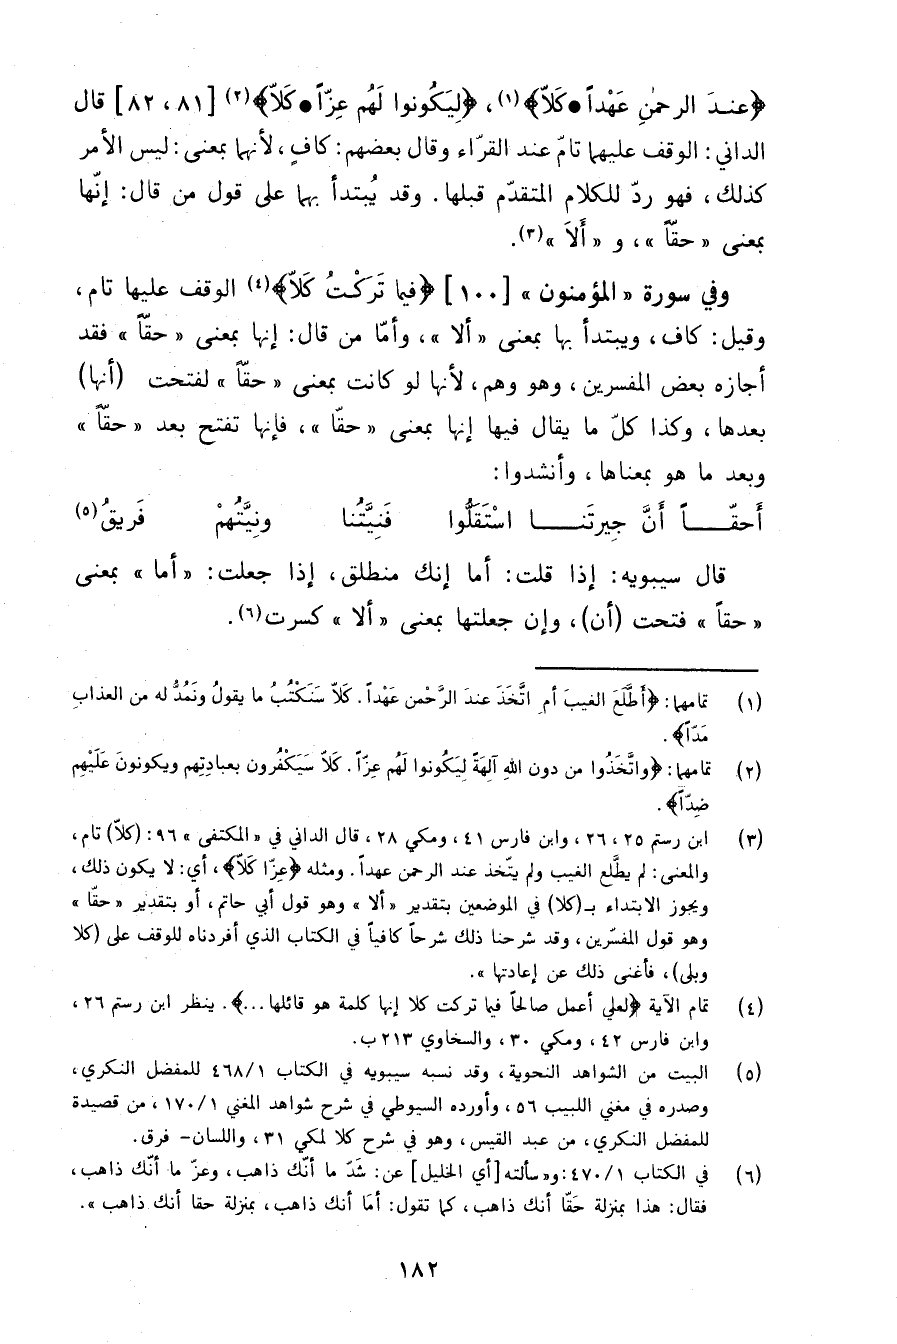 ﴿عنـدَ الرحمٰنِ عَهْداً • كَلاّ﴾(١)، ﴿لِيَكُونوا لَهُم عِزّاً • كَلاّ﴾(٢) [٨١، ٨٢] قال
الداني: الوقف عليهما تامّ عند القرّاء وقال بعضهم: كافٍ، لأنهما بمعنى: ليس الأمر
كذلك، فهو ردّ للكلام المتقدّم قبلها. وقد يُبتدأ بهما على قول من قال: إنّها
بمعنى «حقّاً»، و«أَلاَ»(٣).
وفي سورة «المؤمنون» [١٠٠] ﴿فيما تَرَكْتُ كَلاّ﴾(٤) الوقف عليها تام،
وقيل: كاف، ويبتدأ بها بمعنى «ألا»، وأمّا من قال: إنها بمعنى «حقّاً» فقد
أجازه بعض المفسرين، وهو وهم، لأنها لو كانت بمعنى «حقاً» لفتحت (أنها)
بعدها، وكذا كلّ ما يقال فيها إنها بمعنى «حقّا»، فإنها تفتح بعد «حقّاً»
وبعد ما هو بمعناها، وأنشدوا:
أَحقّـــاً أَنَّ جيرتَنـــا اسْتَقَلُّوا فَنِيَّتُنا ونِيَّتُهمْ فَريقُ(٥)
قال سيبويه: إذا قلت: أما إنك منطلق، إذا جعلت: «أما» بمعنى
«حقاً» فتحت (أن)، وإن جعلتها بمعنى «ألا» كسرت(٦).
(١) تمامها: ﴿أَطَّلَعَ الغيبَ أم اتَّخَذَ عندَ الرَّحْمن عَهْداً. كَلاّ سَنَكْتُبُ ما يقولُ ونَمُدُّ له من العذابِ
مَدّاً﴾.
(٢) تمامها: ﴿واتَّخَذُوا من دون اللهِ آلِهَةً لِيَكُونوا لَهُم عِزّاً. كَلاّ سَيَكْفُرون بعبادتِهم ويكونونَ عَلَيْهِم
ضِدّاً﴾.
(٣) ابن رستم ٢٥، ٢٦، وابن فارس ٤١، ومكي ٢٨، قال الداني في «المكتفى» ٩٦: (كلاّ) تام،
والمعنى: لم يطَّلع الغيب ولم يتّخذ عند الرحمن عهداً. ومثله ﴿عِزّا كَلاّ﴾، أي: لا يكون ذلك،
ويجوز الابتداء بـ(كلا) في الموضعين بتقدير «ألا» وهو قول أبي حاتم، أو بتقدير «حقّا»
وهو قول المفسّرين، وقد شرحنا ذلك شرحاً كافياً في الكتاب الذي أفردناه للوقف على (كلا
وبلى)، فأغنى ذلك عن إعادتها».
(٤) تمام الآية ﴿لعلي أعمل صالحاً فيما تركت كلا إنها كلمة هو قائلها...﴾. ينظر ابن رستم ٢٦،
وابن فارس ٤٢، ومكي ٣٠، والسخاوي ٢١٣ ب.
(٥) البيت من الشواهد النحوية، وقد نسبه سيبويه في الكتاب ٤٦٨/١ للمفضل النكري،
وصدره في مغني اللبيب ٥٦، وأورده السيوطي في شرح شواهد المغني ١٧٠/١، من قصيدة
للمفضل النكري، من عبد القيس، وهو في شرح كلا لمكي ٣١، واللسان- فرق.
(٦) في الكتاب ٤٧٠/١: و«سألته [أي الخليل] عن: شَدّ ما أنّك ذاهب، وعزّ ما أنّك ذاهب،
فقال: هذا بمنزلة حَقّا أنك ذاهب، كما تقول: أمَا أنك ذاهب، بمنزلة حقا أنك ذاهب».
١٨٢